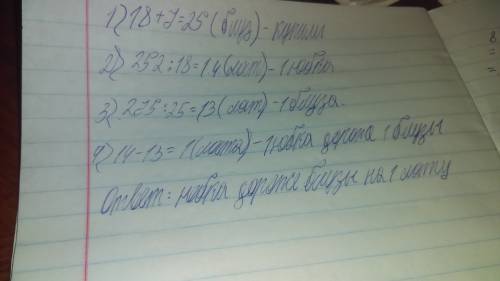 1) 18+7=25 (блуз) - купили
2) 252:18=14 (лат) - 1 юбка
3) 275:25=13 (лат) - 1 блуза.
4) 14-13=1 (лата) - 1 юбка дороже 1 блузы
Ответ: юбка дороже блузы на 1 лату